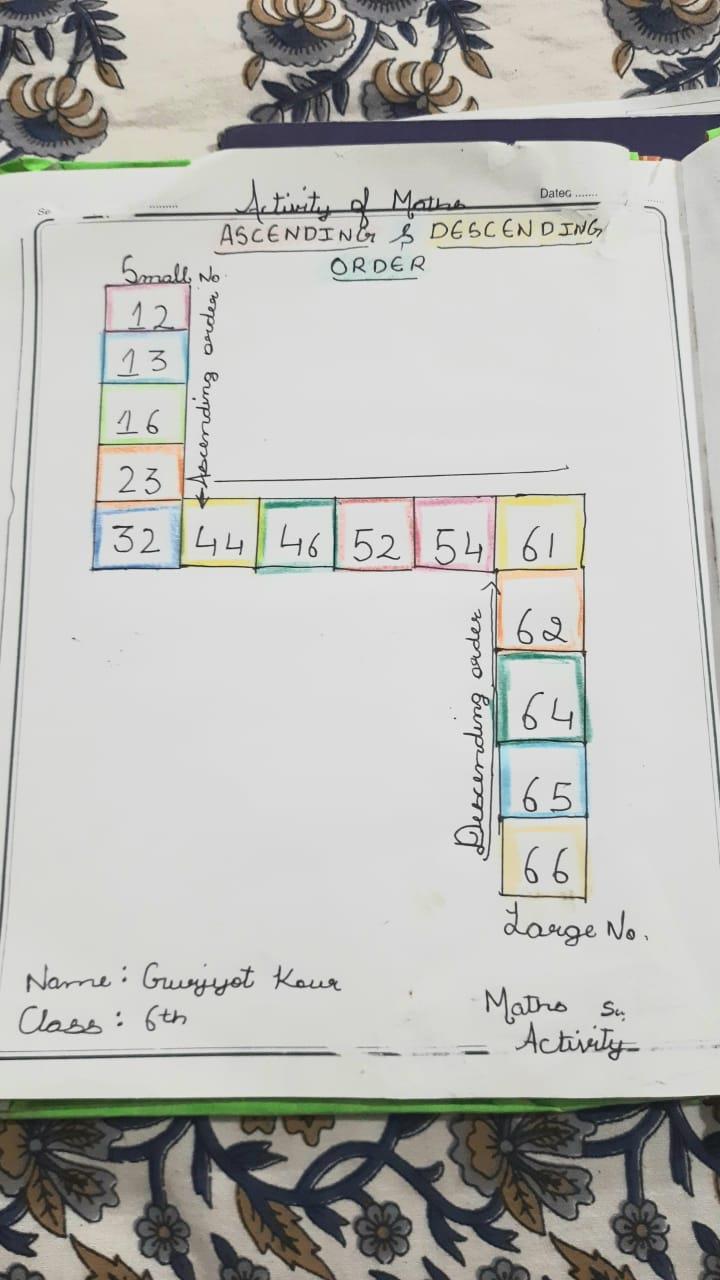 Activity of Maths
Date: .......
ASCENDING & DESCENDING
ORDER
Small No.
12
13
16
23
32 44 46 52 54 61
Ascending order
62
64
65
66
Descending order
Large No.
Name: Gurjyot Kaur
Class: 6th
Maths
Activity